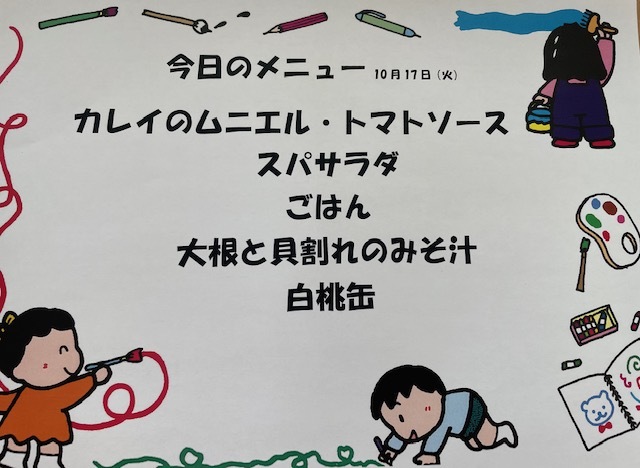 今日のメニュー 10月17日（火）
カレイのムニエル・トマトソース
スパサラダ
ごはん
大根と貝割れのみそ汁
白桃缶